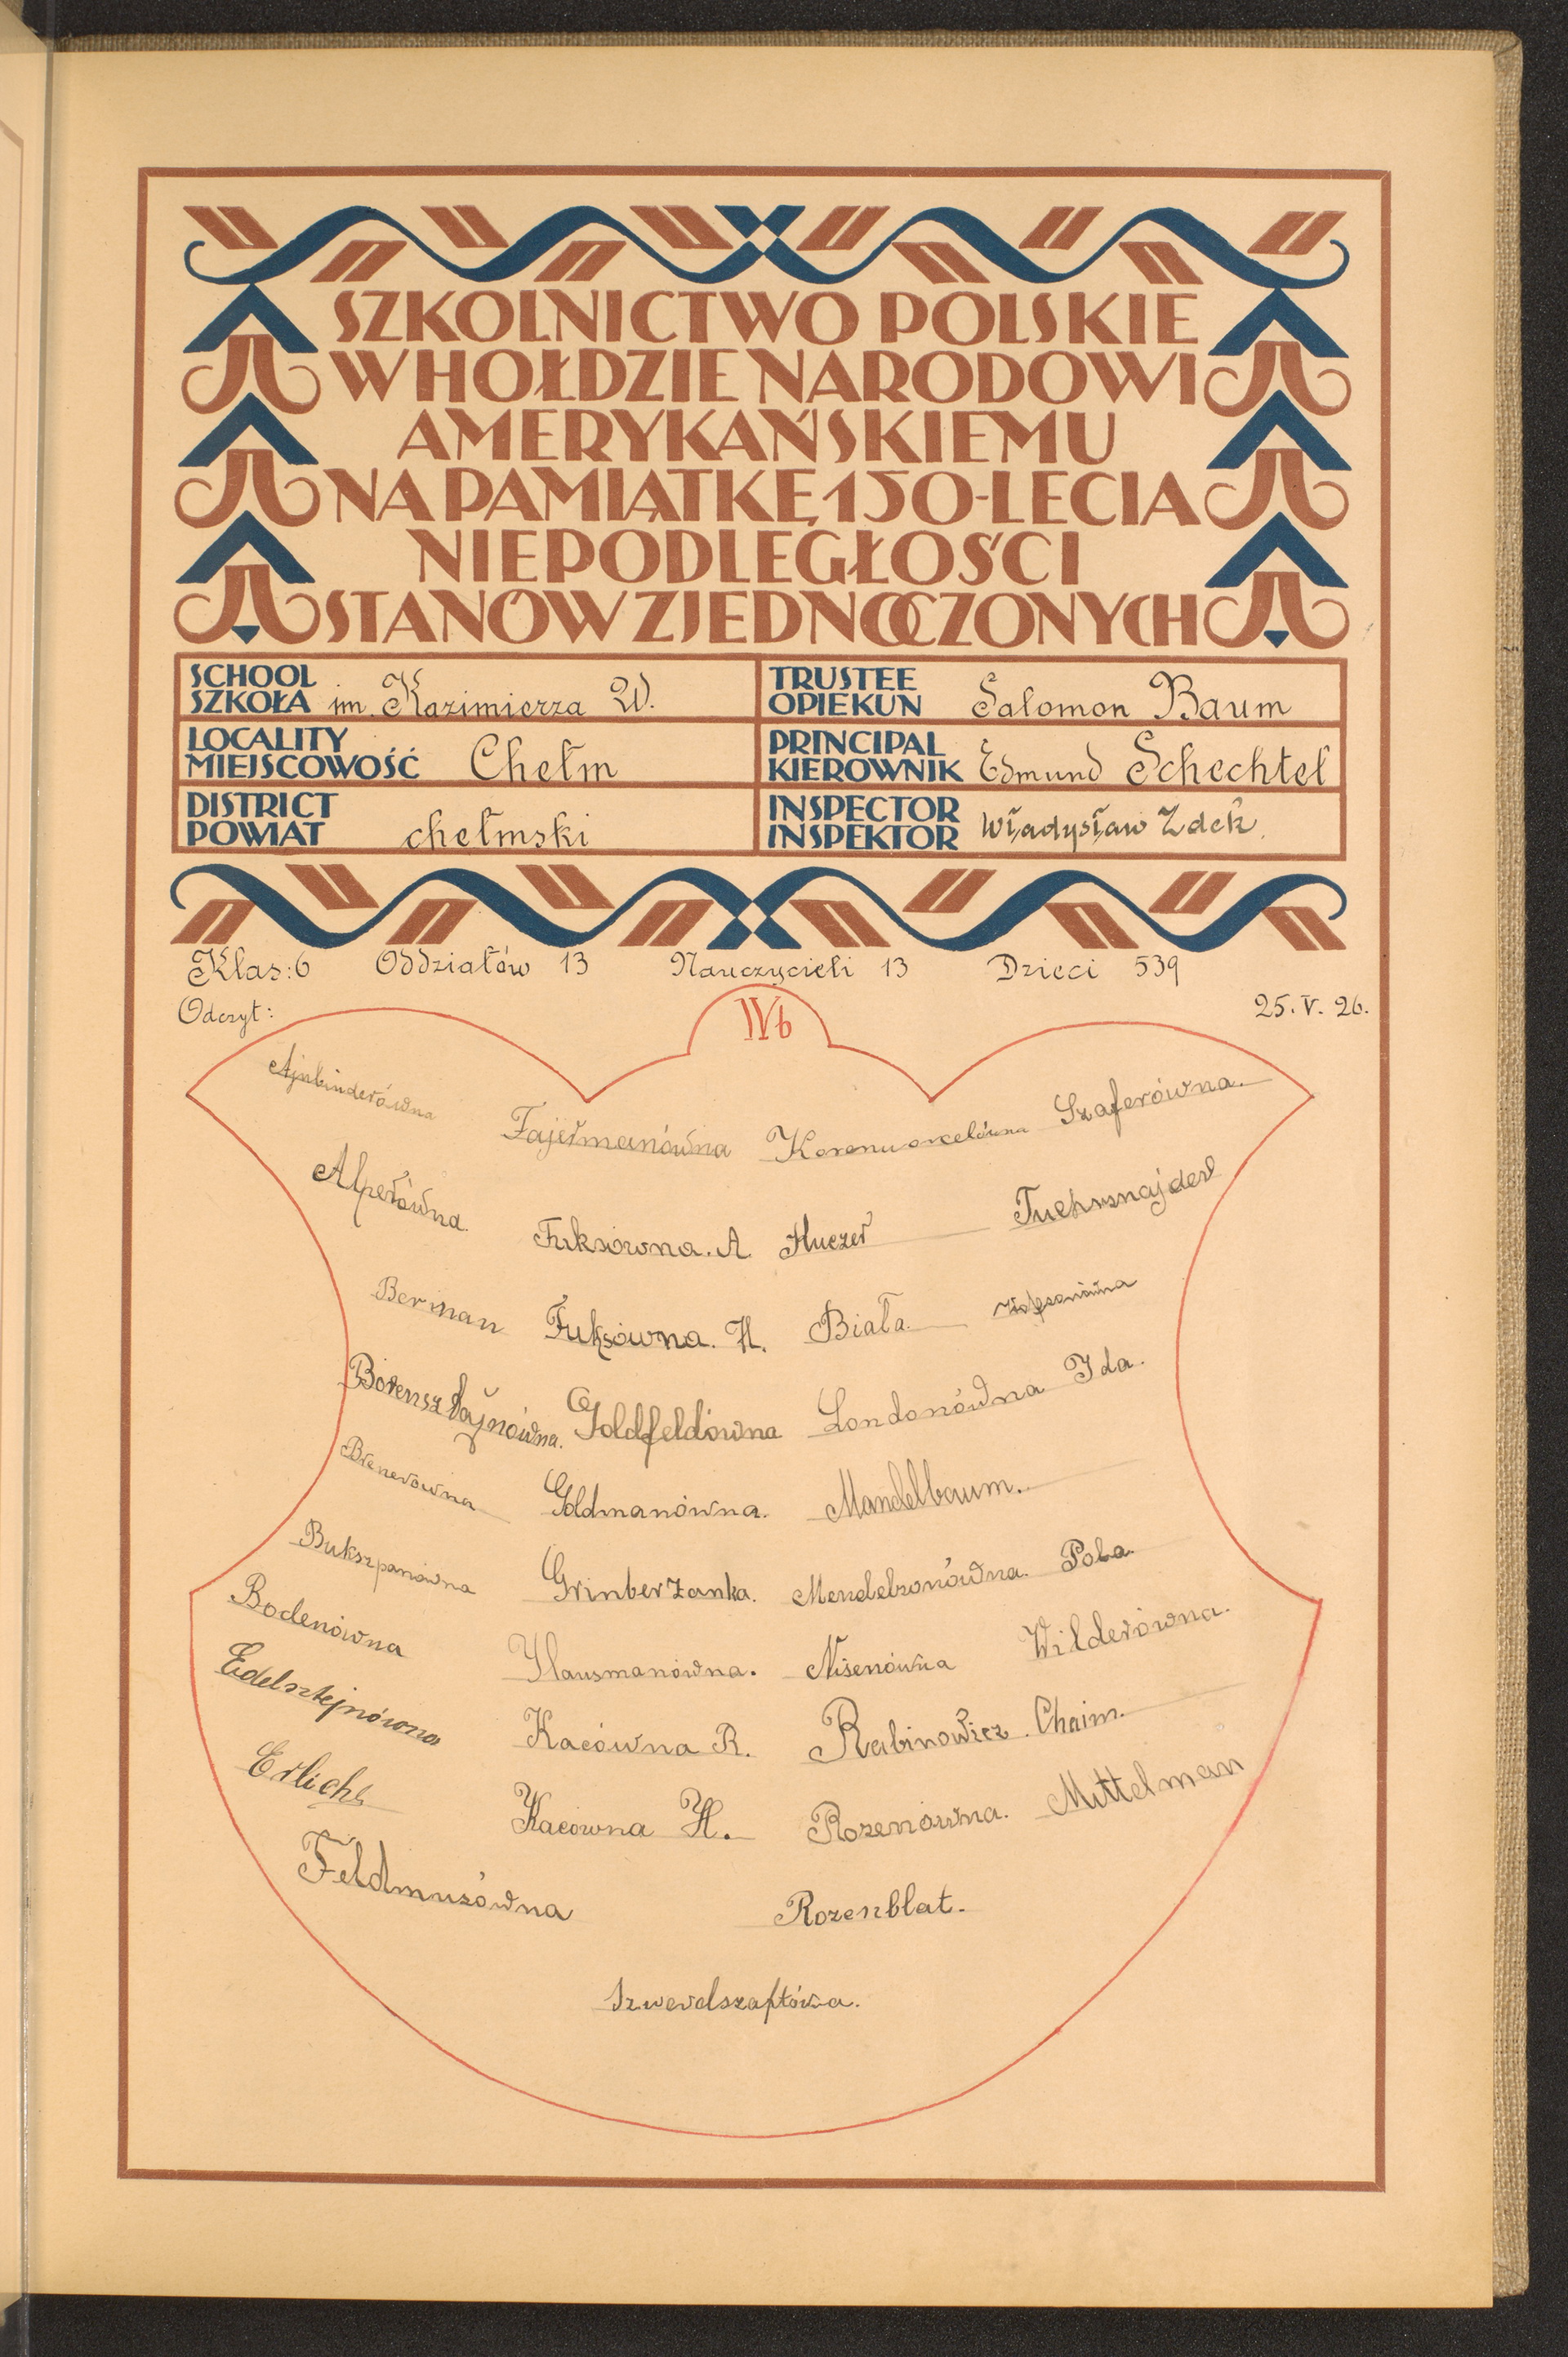 SZKOLNICTWO POLSKIE
W HOŁDZIE NARODOWI
AMERYKAŃSKIEMU
NA PAMIĄTKĘ 150-LECIA
NIEPODLEGŁOŚCI
STANÓW ZJEDNOCZONYCH
SCHOOL
SZKOŁA im. Kazimierza W.
TRUSTEE
OPIEKUN Salomon Baum
LOCALITY
MIEJSCOWOŚĆ Chełm
PRINCIPAL
KIEROWNIK Edmund Schechtel
DISTRICT
POWIAT chełmski
INSPECTOR
INSPEKTOR Władysław Zdek.
Klas: 6 Oddziałów 13 Nauczycieli 13 Dzieci 539
Odczyt: 25. V. 26.
IVb
Ajnbinderówna
Fajermanówna Szaferówna.
Alperówna Fuksówna. A. Huczer Tuchsznajder
Berman Fuksówna. H. Biała
Borensztajnówna. Goldfeldówna Londonówna Ida.
Brenerówna Goldmanówna. Mandelbaum.
Bukszpanówna Grinberżanka. Mendelsonówna. Pola
Bodenówna Hausmanówna. Nisenówna Wilderówna.
Edelsztejnówna Kacówna R. Rabinowicz Chaim.
Erlich Kacówna H. Rozenówna. Mittelman
Feldmuzówna Rozenblat.
Szwerdszaftówa.